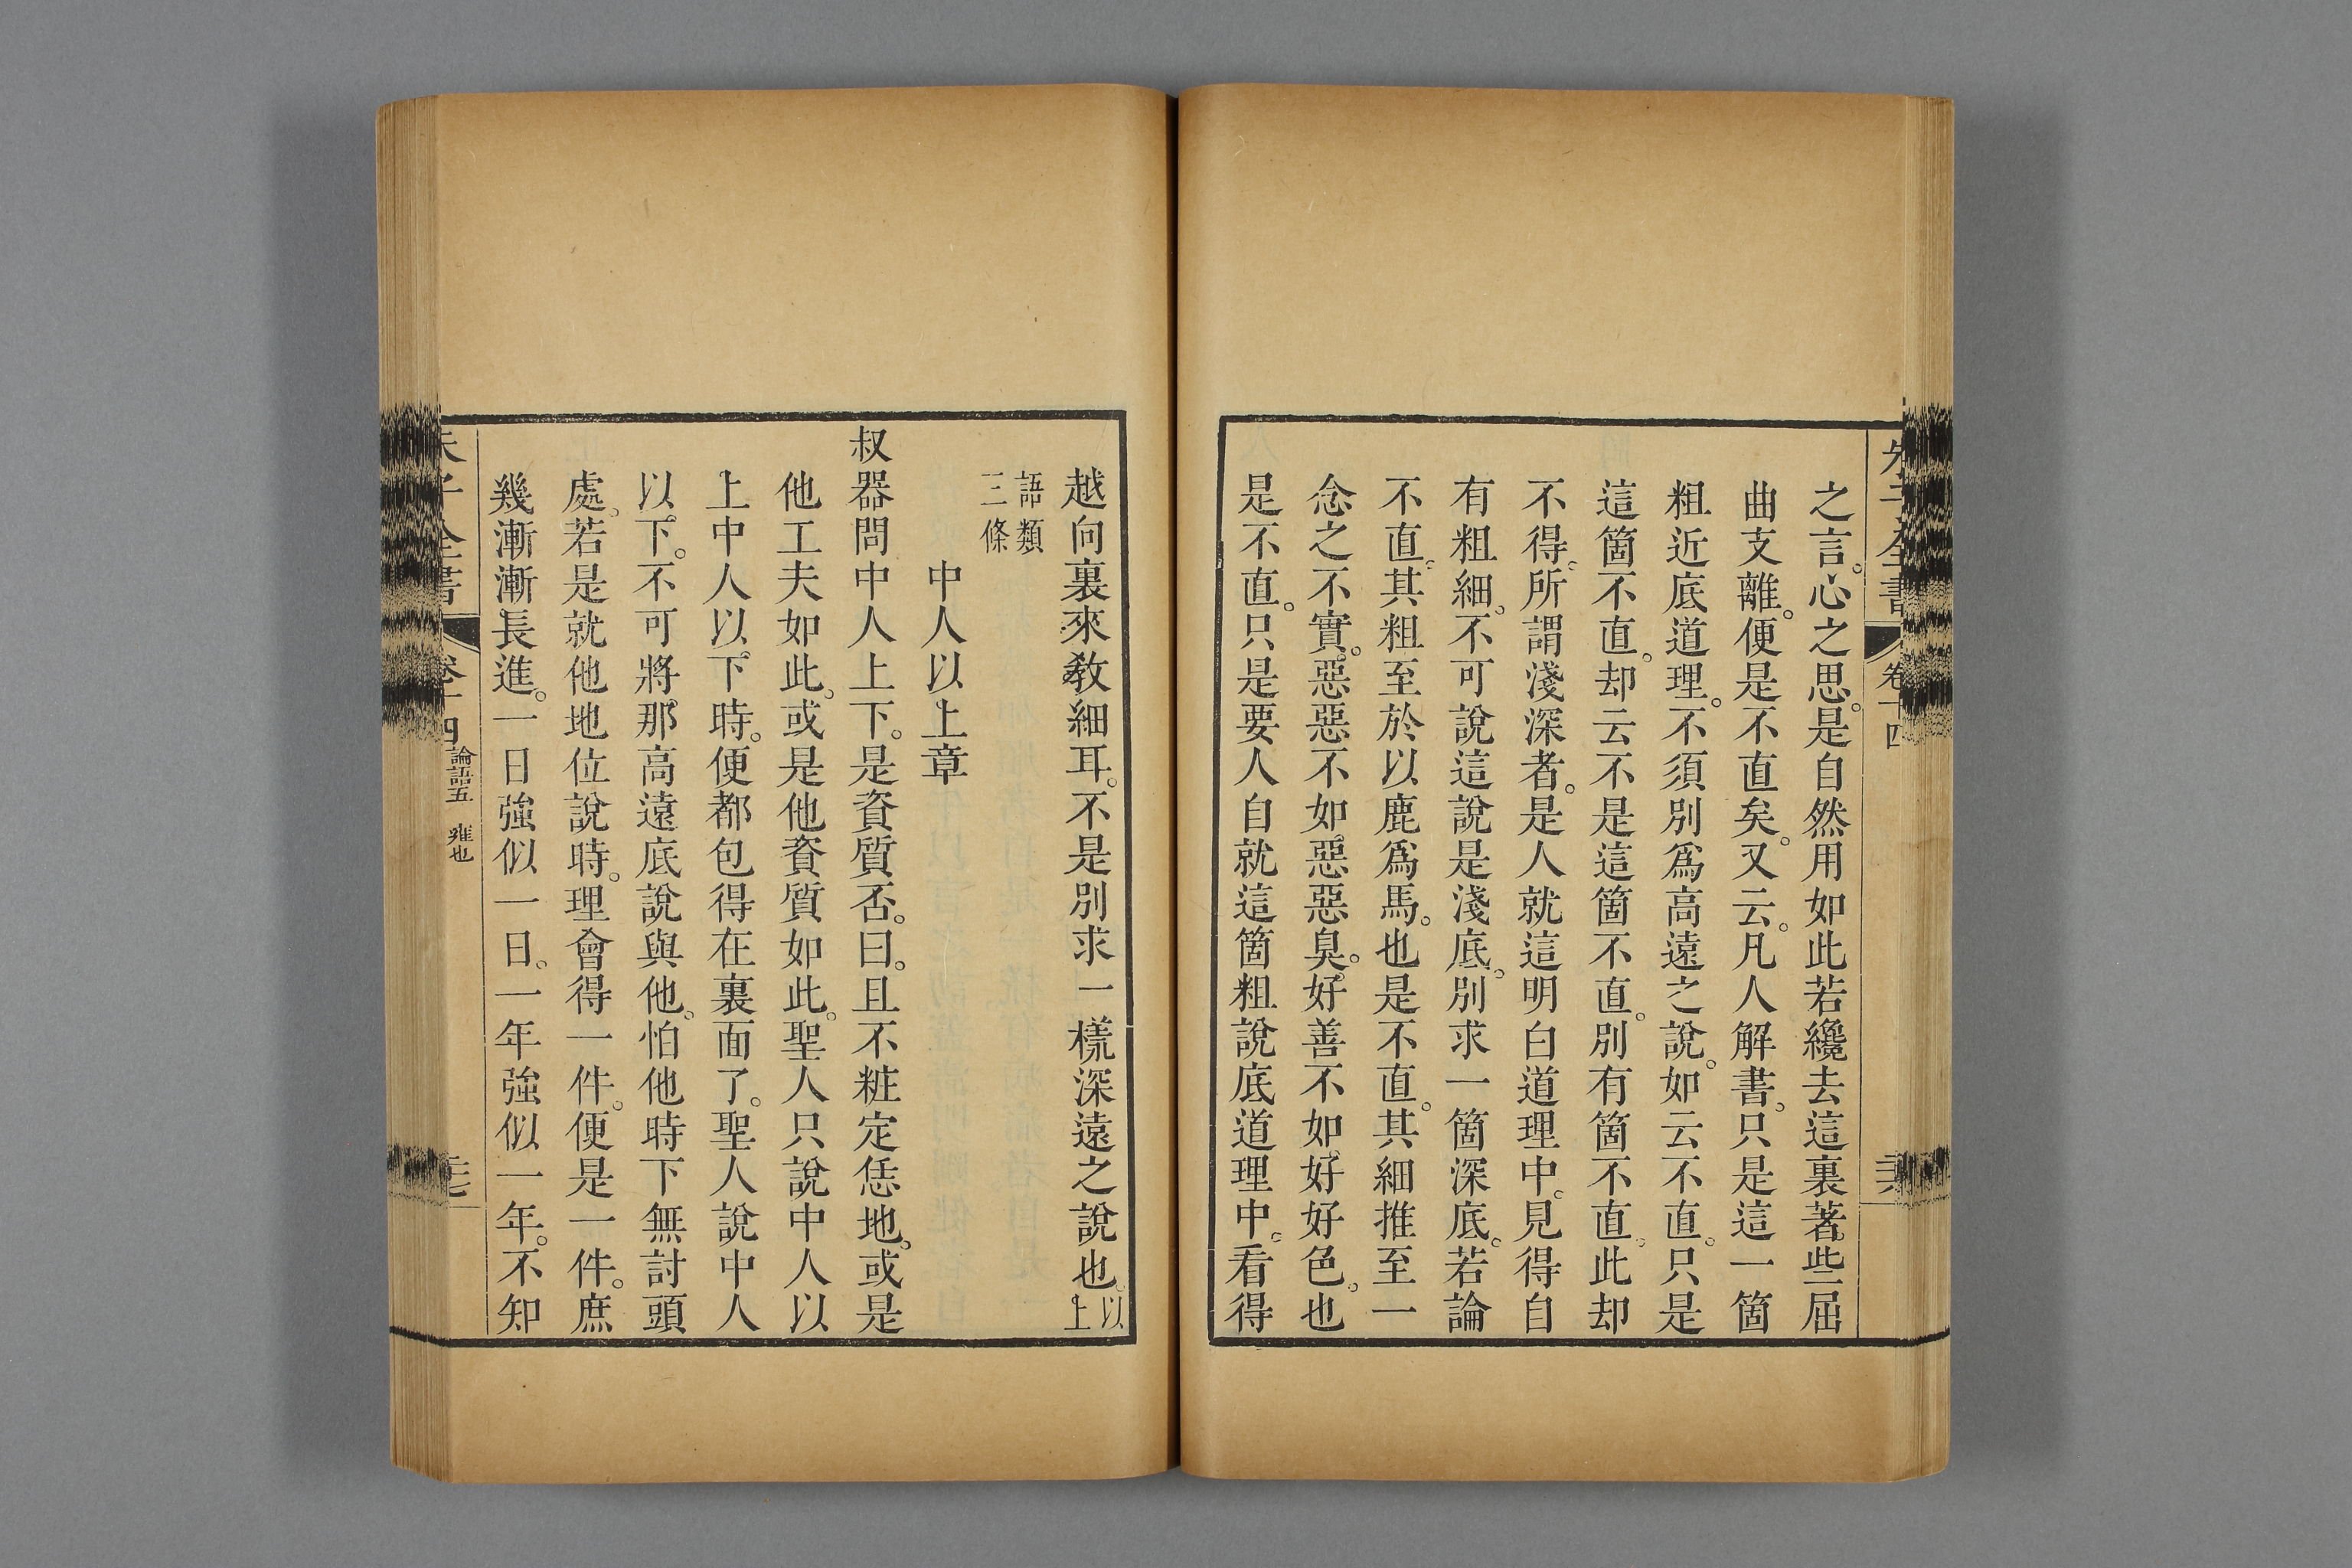 朱子全書 卷十四
之言。心之思。是自然用如此若纔去這裏著些屈
曲支離。便是不直矣。又云。凡人解書。只是這一箇
粗近底道理。不須別爲高遠之說。如云不直。只是
這箇不直。却云不是這箇不直。別有箇不直。此却
不得。所謂淺深者。是人就這明白道理中。見得自
有粗細。不可說這說是淺底。別求一箇深底。若論
不直。其粗至於以鹿爲馬。也是不直。其細推至一
念之不實。惡惡不如惡惡臭。好善不如好好色。也
是不直。只是要人自就這箇粗說底道理中。看得
越向裏來教細耳。不是別求一樣深遠之說也。以上
語類三條
中人以上章
叔器問中人上下。是資質否。曰。且不粧定恁地。或是
他工夫如此。或是他資質如此。聖人只說中人以
上中人以下時。便都包得在裏面了。聖人說中人
以下。不可將那高遠底說與他。怕他時下無討頭
處。若是就他地位說時。理會得一件。便是一件。庶
幾漸漸長進。一日強似一日。一年強似一年。不知
朱子全書 卷十四 論語五 雍也